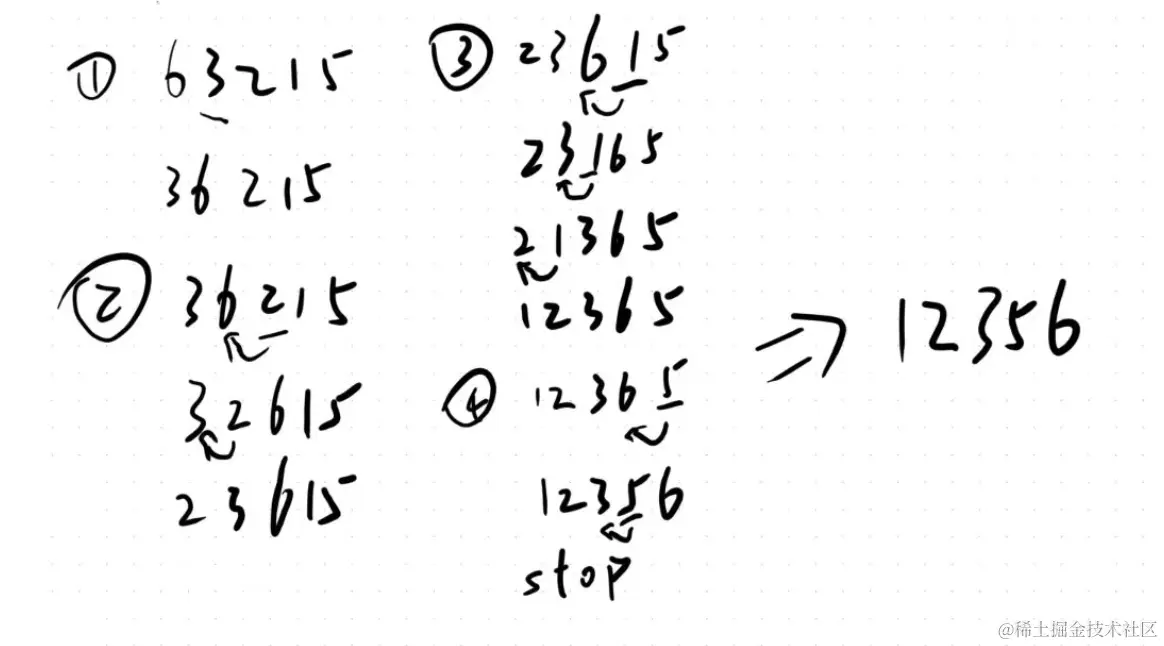 ① 63215
36215
② 36215
32615
23615
③ 23615
23165
21365
12365
④ 12365
12356
stop
⇒ 12356
@稀土掘金技术社区